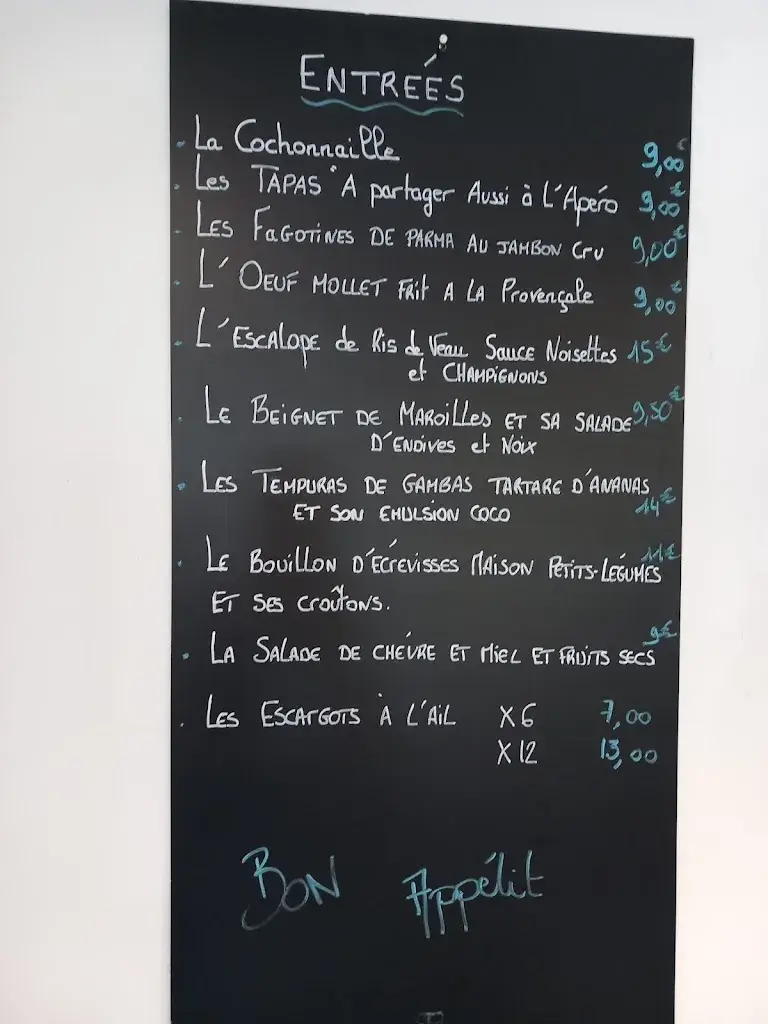 ENTRÉES
. La Cochonnaille 9,00€
. Les TAPAS "A partager Aussi à L'Apéro 9,00€
- LES FAGOTINES DE PARMA AU JAMBON Cru 9,00€
. L'OEUF MOLLET FRit A LA Provençale 9,00€
. L'ESCALOPE de Ris de Veau Sauce Noisettes 15€
et CHAMPIGNONS
. LE BEIGNET DE MAROILLES ET SA SALADE 9,50€
D'ENDIVES et NOIX
. LES TEMPURAS DE GAMBAS TARTARE D'ANANAS
ET SON EMULSION COCO 14€
. LE BOUILLON D'ÉCREVISSES MAISON PETITS-LÉGUMES 11€
ET SES CROÛTONS.
. LA SALADE DE CHÈVRE ET MIEL ET FRUITS SECS 9€
. LES ESCARGOTS À L'AIL X6 7,00
X12 13,00
BON Appétit